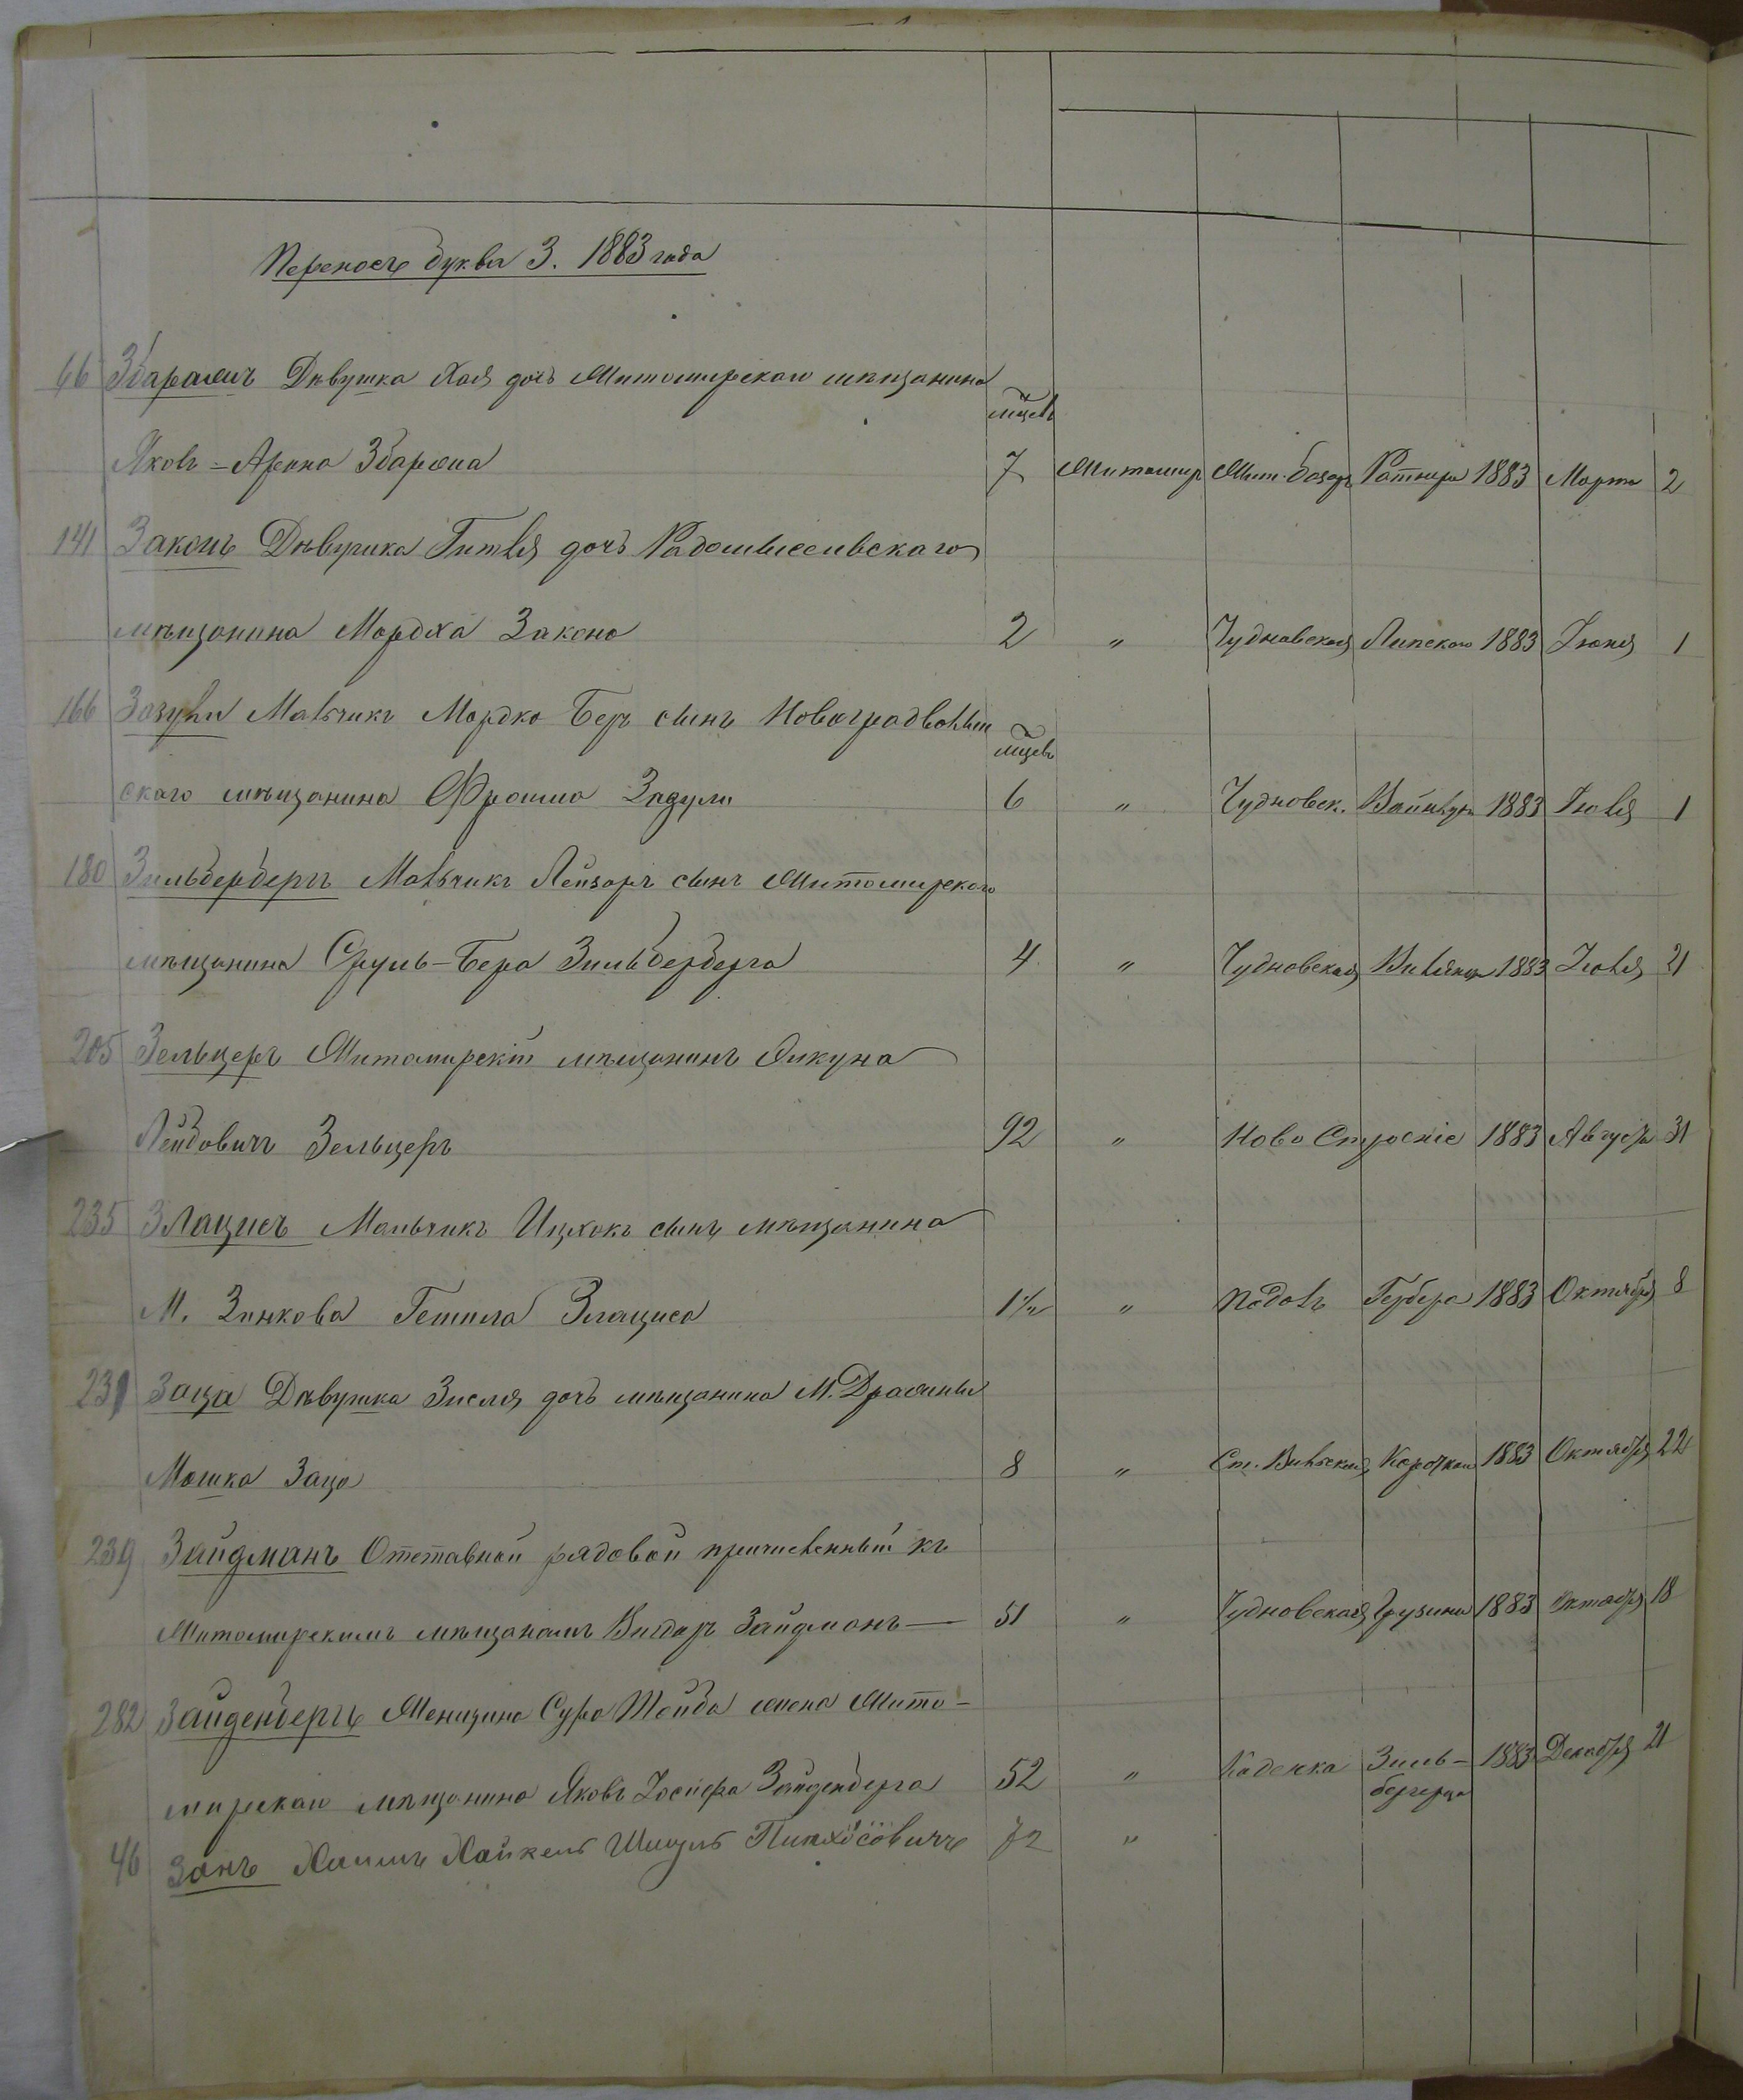 Переносъ буква З. 1883 года
66 Збаражъ Дѣвушка Хая дочь Житомирскаго мѣщанина мѣсецъ
Яковъ-Арена Збаража 7 Житомир Жит. базаръ Ратнера 1883 Марта 2
141 Законъ Дѣвушка Гитля дочь Радомысельскаго
мѣщанина Мордха Закона 2 " Чудновская Липскаго 1883 Іюня 1
166 Зозули Мальчикъ Мордко Беръ сынъ Новоградволын мѣсецъ
скаго мѣщанина Фроима Зазули 6 " Чудновск. 1883 Іюля 1
180 Зильбербергъ Мальчикъ Лейзоръ сынъ Житомирскаго
мѣщанина Сруль-Бера Зильберберга 4 " Чудновская 1883 Іюля 21
205 Зельцеръ Житомирскій мѣщанинъ
Лейбовичъ Зельцеръ 92 " Ново Строеніе 1883 Августа 31
235 Злацисъ Мальчикъ Ицхокъ сынъ мѣщанина
М. Зинкова Гешила Злациса 1½ " Подолъ Гербера 1883 Октября 8
231 Заца Дѣвушка Зисля дочь мѣщанина М. Дражни
Мошка Заца 8 " Ст. Вильская 1883 Октября 22
239 Зайдманъ Отставной рядовой причисленный къ
Житомирскимъ мѣщанамъ Вигдоръ Зайдманъ 51 " Чудновская Грузина 1883 Октября 18
282 Зайденбергъ Женщина Сура Тойба жена Жито-
мирскаго мѣщанина Яковъ Іосифа Зайденберга 52 " Каденка Зиль- 1883 Декабря 21
бергерца
46 Занъ Хаимъ Хайкель Шмуль Пинхосовичъ 72 "